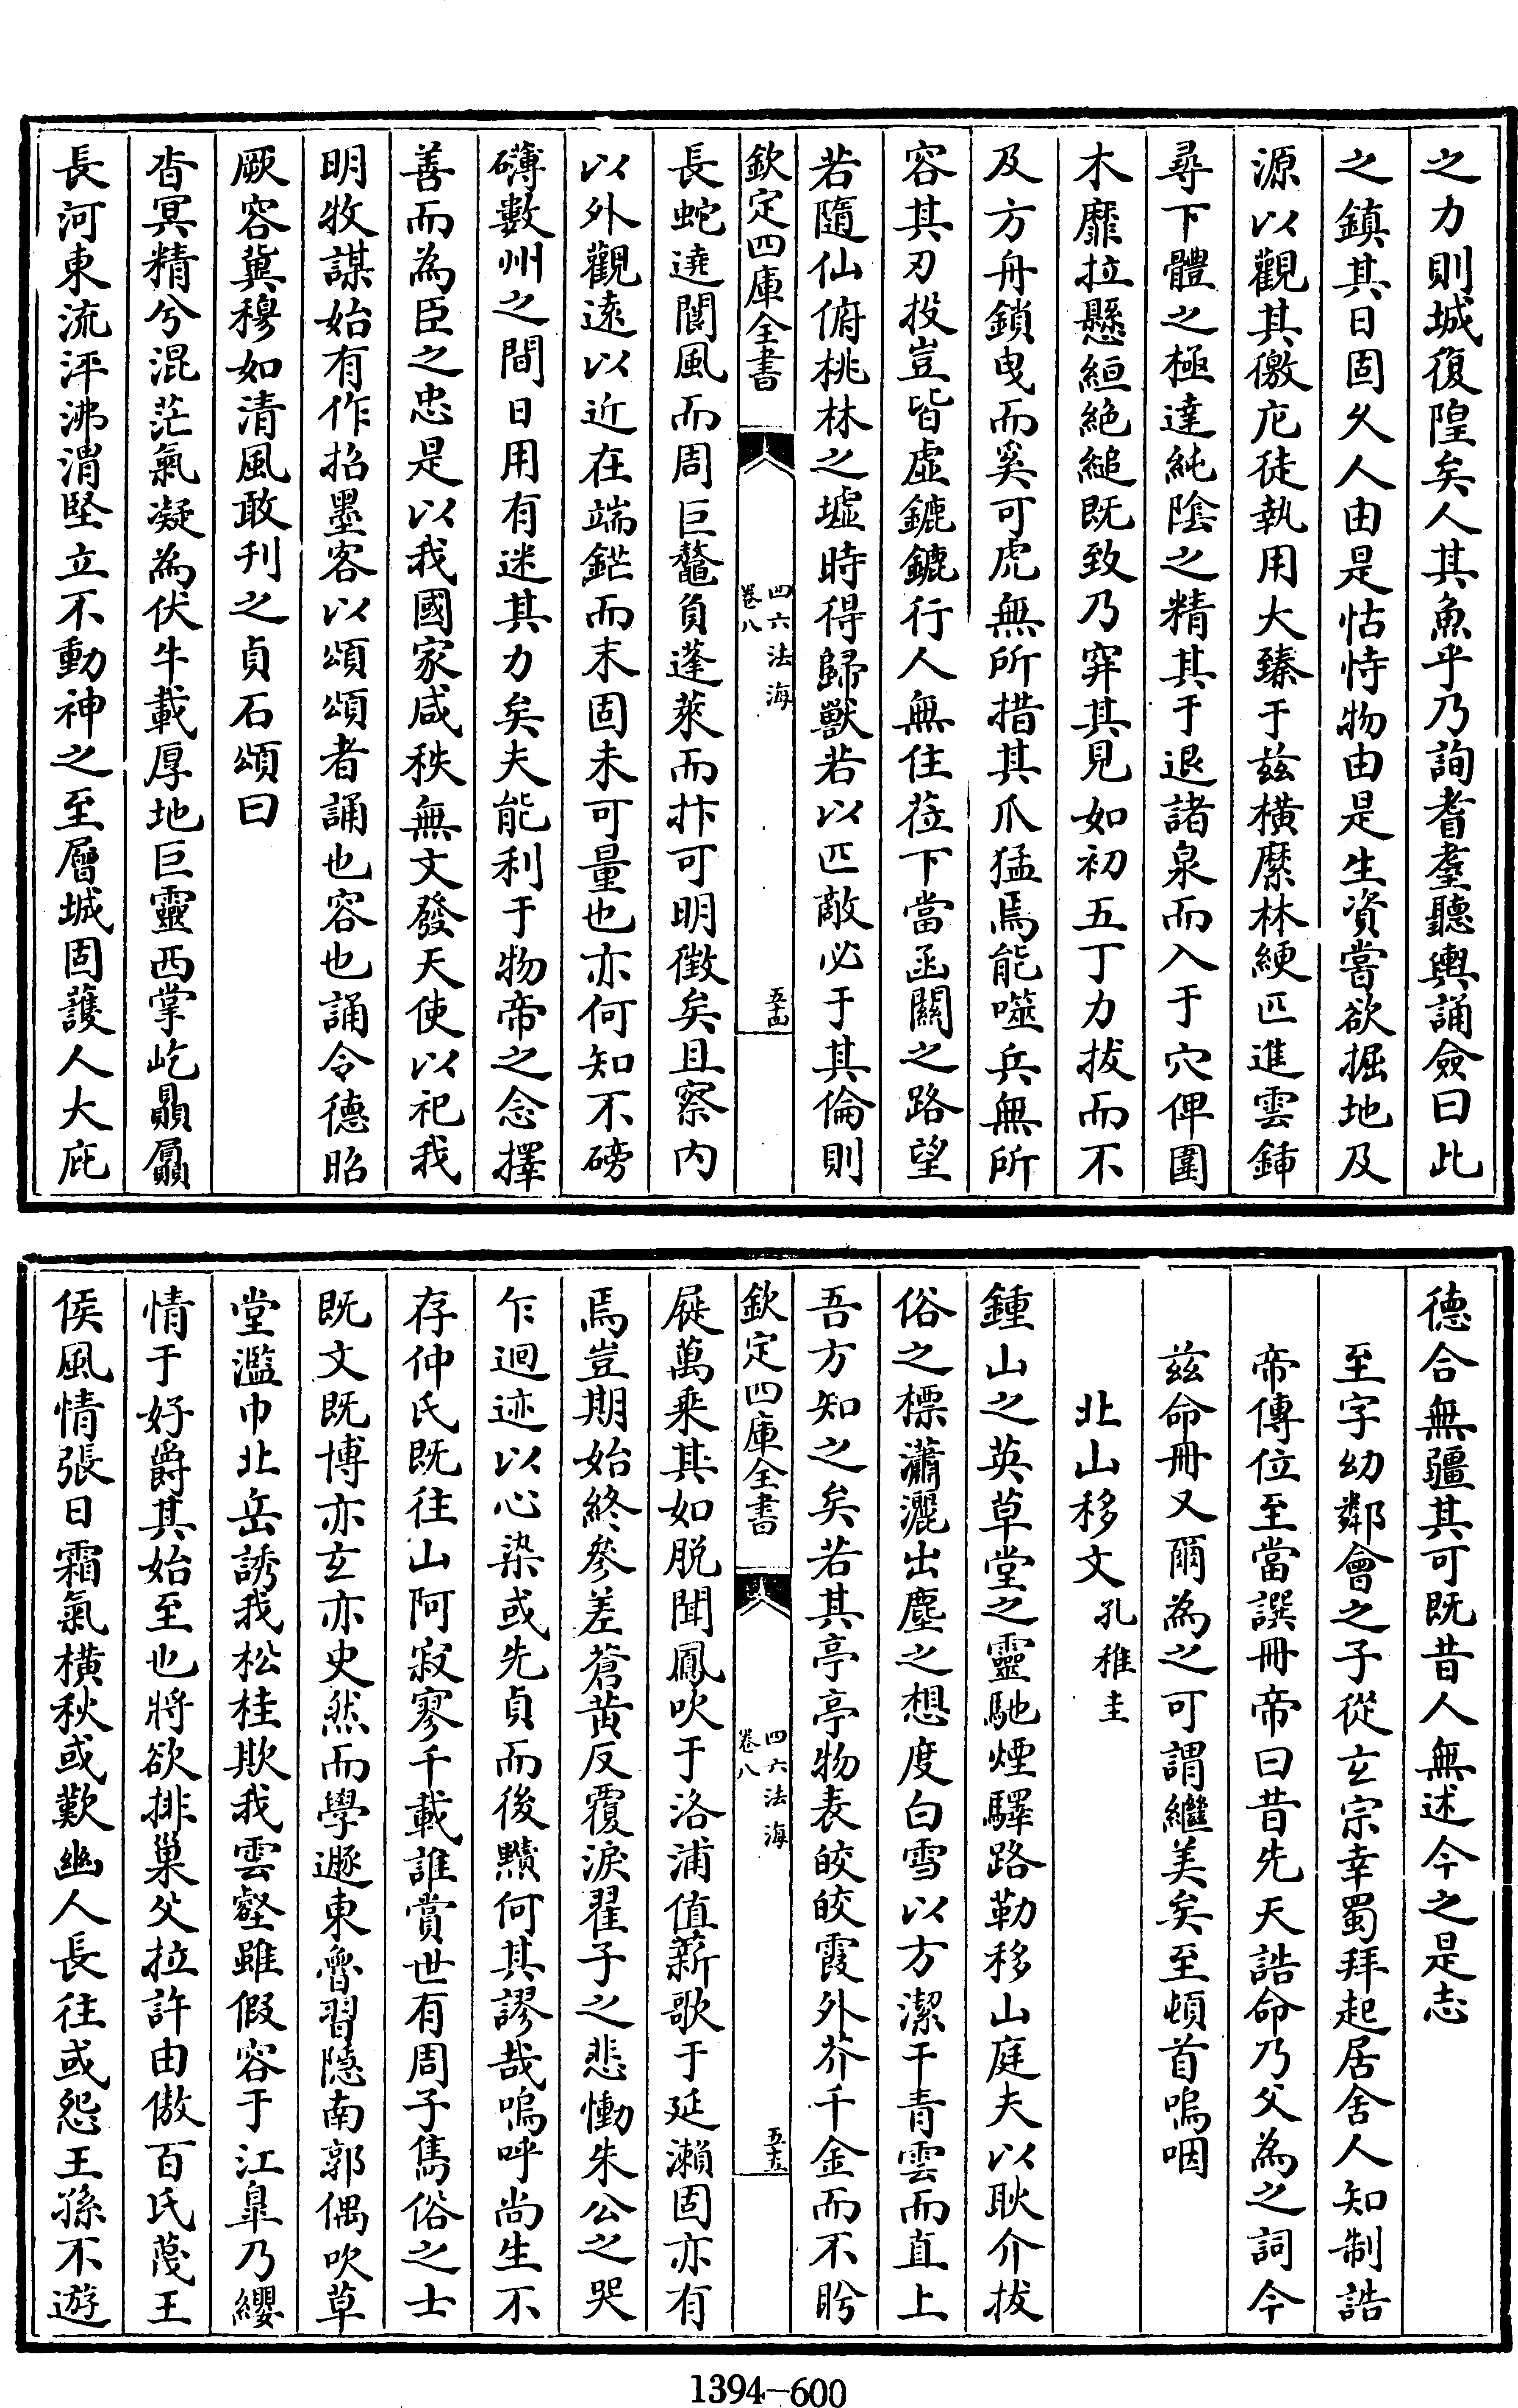 之力則城復隍矣人其魚乎乃詢耆耋聽輿誦僉曰此
之鎮其日固久人由是怙恃物由是生資嘗欲掘地及
源以觀其儌庀徒執用大臻于茲橫縻林綆匹進雲鍤
尋下體之極達純陰之精其于退諸泉而入于穴俾圍
木靡拉懸絙絶縋既致乃穽其見如初五丁力拔而不
及方舟鎖曳而奚可虎無所措其爪猛焉能噬兵無所
容其刃投豈皆虛鑣鑣行人無住莅下當函關之路望
若隨仙俯桃林之墟時得歸獸若以匹敵必于其倫則
欽定四庫全書
四六法海
卷八
五十四
長蛇遶閬風而周巨鼇負蓬萊而抃可明徵矣且察内
以外觀遠以近在端鋩而末固未可量也亦何知不磅
礴數州之間日用有迷其力矣夫能利于物帝之念擇
善而為臣之忠是以我國家咸秩無文發天使以祀我
明牧謀始有作招墨客以頌頌者誦也容也誦令德昭
厥容冀穆如清風敢刊之貞石頌曰
杳冥精兮混茫氣凝為伏牛載厚地巨靈西掌屹贔屭
長河東流泙沸渭堅立不動神之至層城固護人大庇
德合無疆其可既昔人無述今之是志
至字幼鄰會之子從玄宗幸蜀拜起居舍人知制誥
帝傳位至當譔冊帝曰昔先天誥命乃父為之詞今
茲命冊又爾為之可謂繼美矣至頓首嗚咽
北山移文孔稚圭
鍾山之英草堂之靈馳煙驛路勒移山庭夫以耿介拔
俗之標瀟灑出塵之想度白雪以方潔干青雲而直上
吾方知之矣若其亭亭物表皎皎霞外芥千金而不盻
欽定四庫全書
四六法海
卷八
五十五
屣萬乘其如脱聞鳳吹于洛浦值薪歌于延瀨固亦有
焉豈期始終參差蒼黄反覆淚翟子之悲慟朱公之哭
乍迴迹以心染或先貞而後黷何其謬哉嗚呼尚生不
存仲氏既往山阿寂寥千載誰賞世有周子雋俗之士
既文既博亦玄亦史然而學遯東魯習隱南郭偶吹草
堂濫巾北岳誘我松桂欺我雲壑雖假容于江臯乃纓
情于好爵其始至也將欲排巢父拉許由傲百氏蔑王
侯風情張日霜氣橫秋或歎幽人長往或怨王孫不遊
1394-600